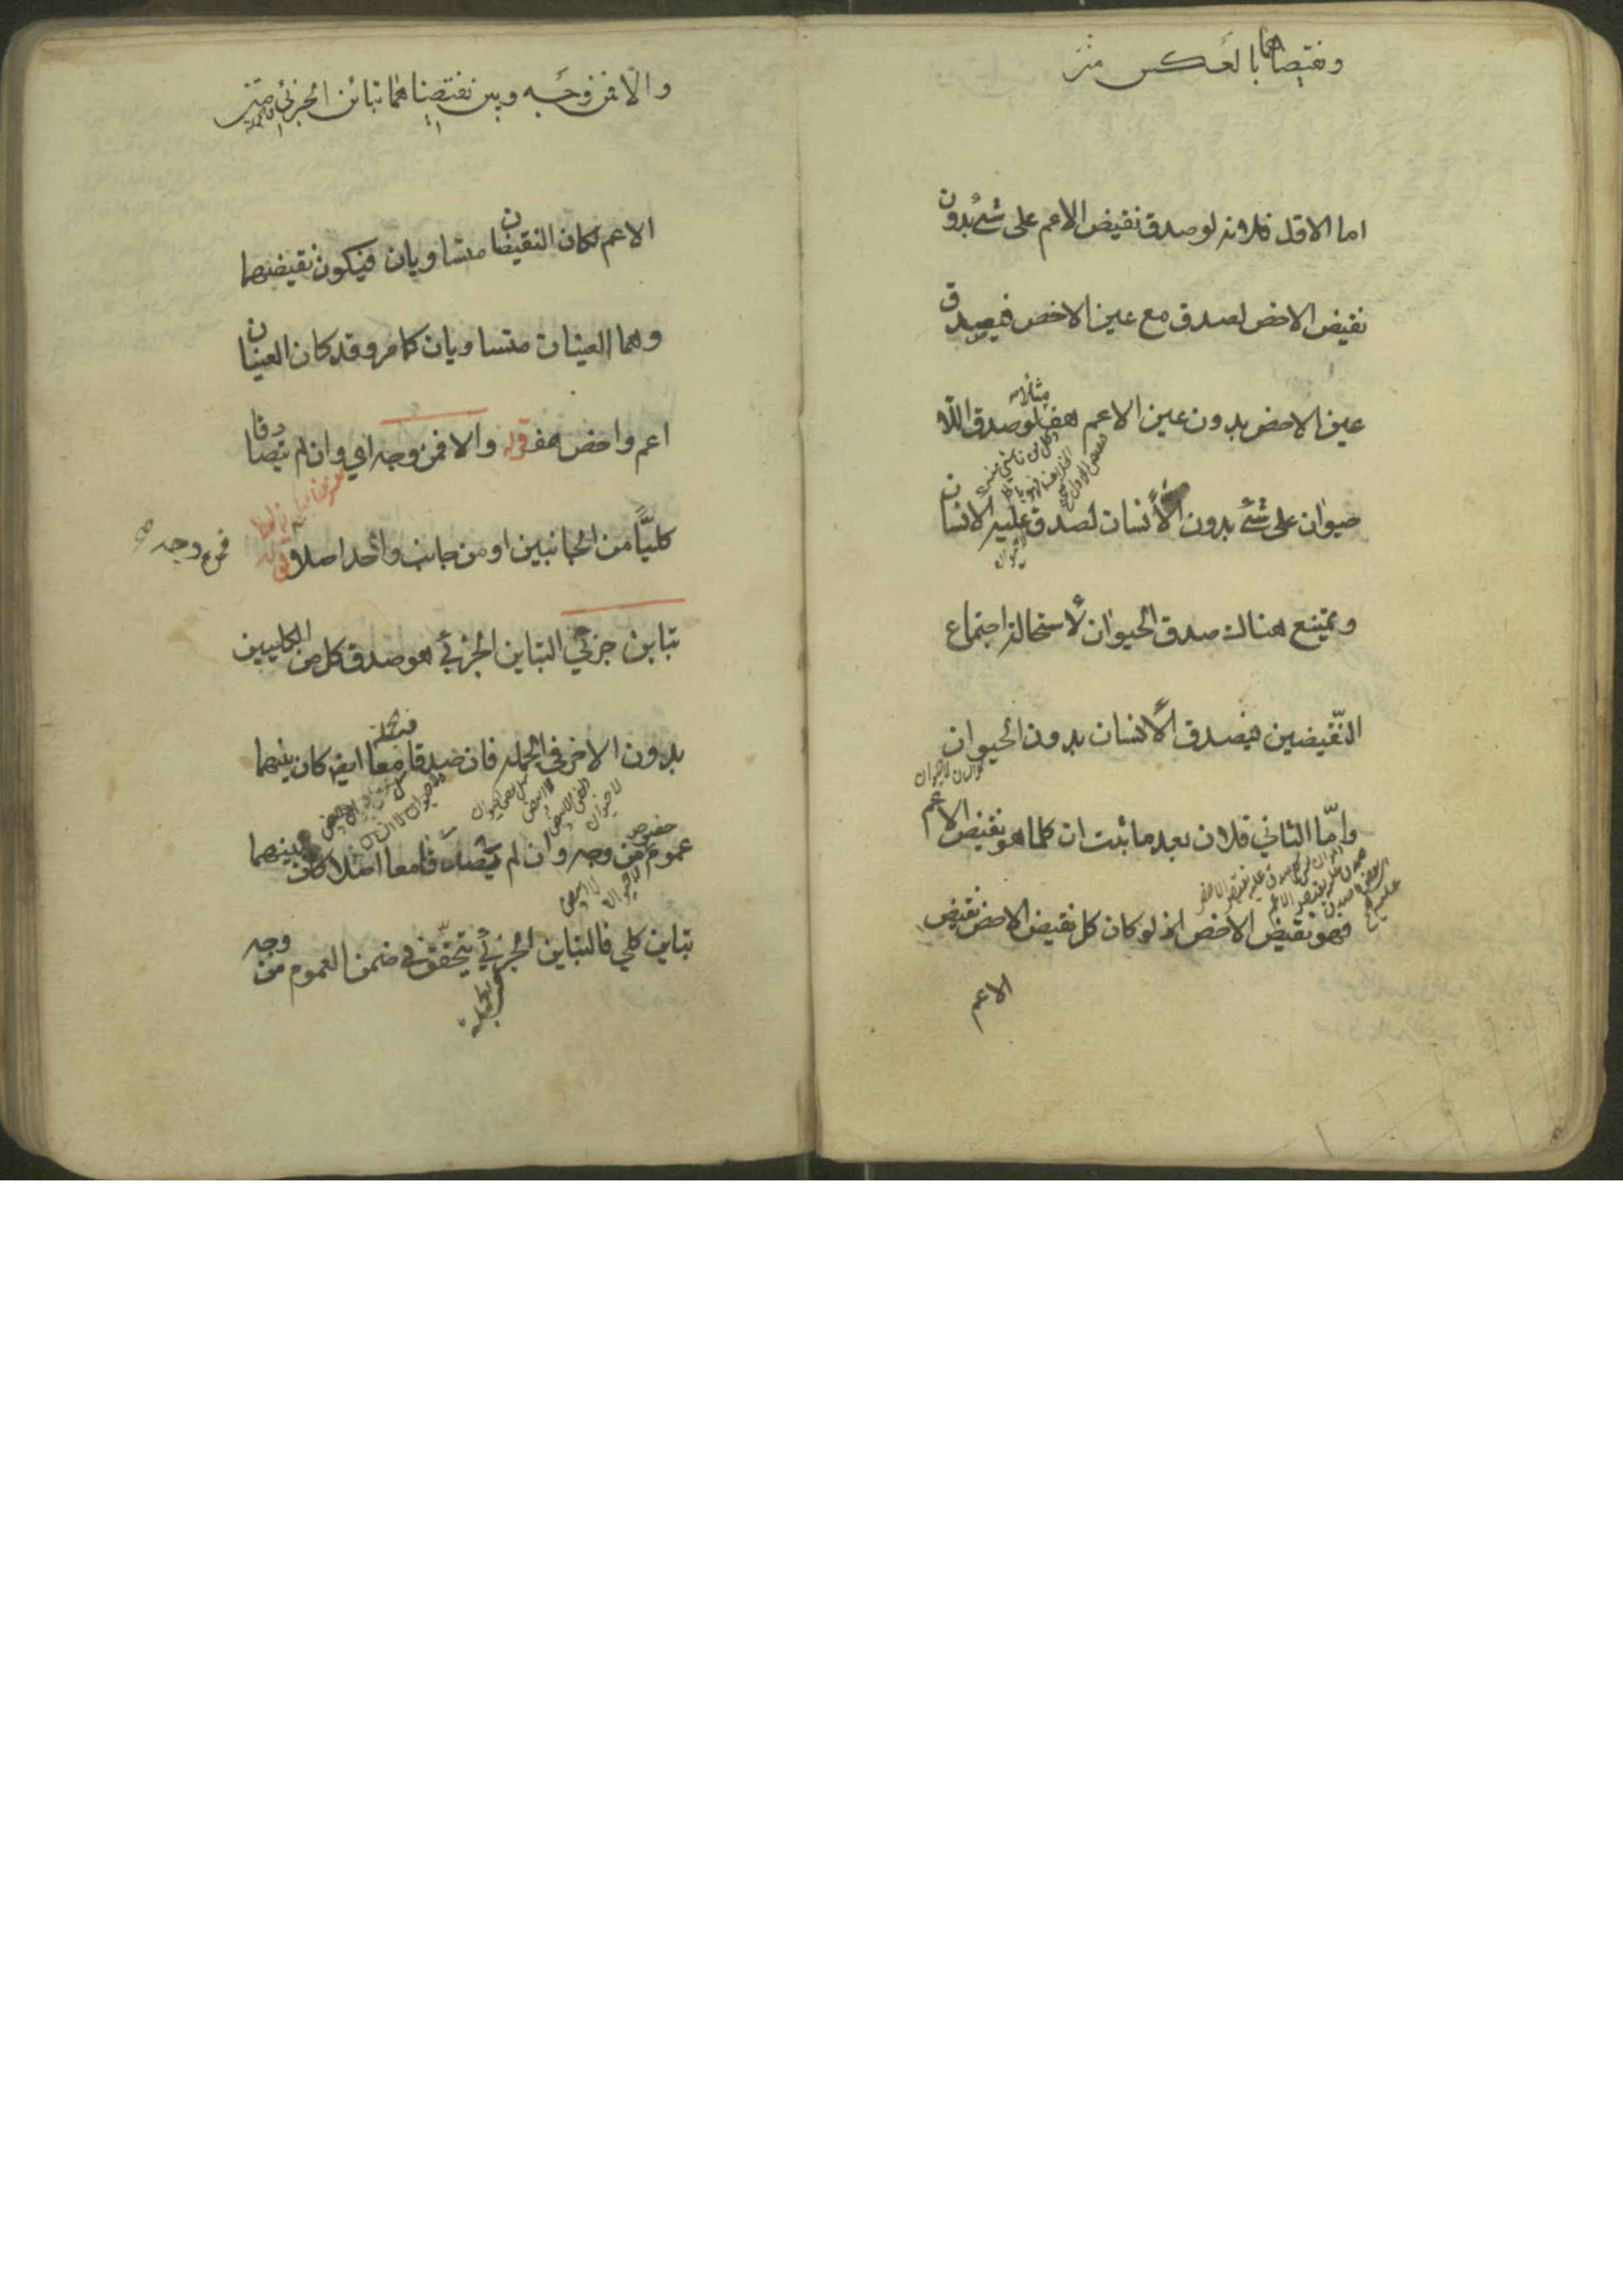 ونقيضاهما بالعكس متن
اما الاول فلانه لو صدق نقيض الاعم على شئ بدون
نقيض الاخص لصدق مع عين الاخص فيصدق
عين الاخص بدون عين الاعم هف فلو صدق اللا
مثلا
حيوان على شئ بدون اللاانسان لصدق عليه الانسان
ويمتنع هناك صدق الحيوان لاستحالة اجتماع
النّقيضين فيصدق الانسان بدون الحيوان
وامّا الثاني فلان بعد ما ثبت ان كلما هو نقيض الاعم
فهو نقيض الاخص اذ لو كان كل نقيض الاخص نقيض
الاعم
والّا فمن وجه وبين نقيضاهما تبائن الجزئي متن
الاعم لكان النقيضان متساويان فيكون نقيضهما
وهما العينان متساويان كما مر وقد كان العينان
اعم واخص هف قوله والا فمن وجه اي وان لم يتصادقا
كليًّا من الجانبين او من جانب واحد اصلا قوله
فمن وجه
تباين جزئي التباين الجزئي هو صدق كل من الكليين
بدون الاخر في الجملة فان صدقا معا ايضا كان بينهما
عموم من وجه وان لم يتصادقا معا اصلا كان بينهما
خصوص
تباين كلي فالتباين الجزئي يتحقّق في ضمن العموم من وجه